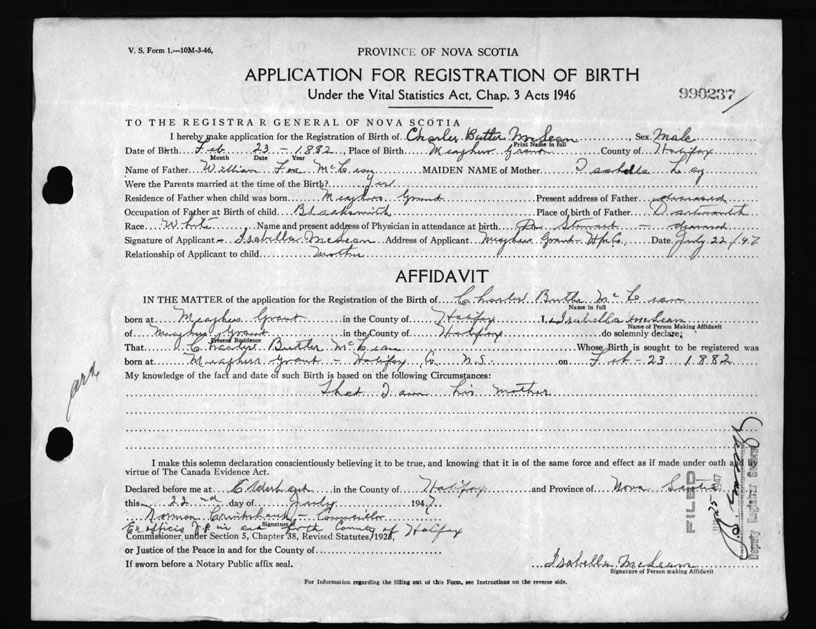 V. S. Form 1.—10M-3-46.
PROVINCE OF NOVA SCOTIA
APPLICATION FOR REGISTRATION OF BIRTH
Under the Vital Statistics Act, Chap. 3 Acts 1946
990237
TO THE REGISTRAR GENERAL OF NOVA SCOTIA
I hereby make application for the Registration of Birth of Charles Butler McLean Sex Male
Print Name in full
Date of Birth Feb 23 - 1882, Place of Birth Meaghers Grant County of Halifax
Month Date Year
Name of Father William Fox McLean MAIDEN NAME of Mother Isabella
Were the Parents married at the time of the Birth? Yes
Residence of Father when child was born Meaghers Grant Present Address of Father deceased
Occupation of Father at Birth of child Blacksmith Place of birth of Father Dartmouth
Race White Name and present address of Physician in attendance at birth Dr Stewart - deceased
Signature of Applicant - Isabella McLean Address of Applicant Meaghers Grant - Hfx Co. Date July 22/47
Relationship of Applicant to child mother
AFFIDAVIT
IN THE MATTER of the application for the Registration of the Birth of Charles Butler McLean
Name in full
born at Meaghers Grant in the County of Halifax I, Isabella McLean
Name of Person Making Affidavit
of Meaghers Grant in the County of Halifax do solemnly declare:
Present Residence
That Charles Butler McLean Whose Birth is sought to be registered was
born at Meagher Grant - Halifax Co N.S. on Feb - 23 1882
My knowledge of the fact and date of such Birth is based on the following Circumstances:
That I am his mother
I make this solemn declaration conscientiously believing it to be true, and knowing that it is of the same force and effect as if made under oath and by
virtue of The Canada Evidence Act.
Declared before me at Elderbank in the County of Halifax and Province of Nova Scotia
this 22nd day of July 1947
Norman Cruikshank - Councillor
Signature
Ex officio J P in and for the County of Halifax
Commissioner under Section 5, Chapter 38, Revised Statutes, 1923,
or Justice of the Peace in and for the County of
If sworn before a Notary Public affix seal.
Isabella McLean
Signature of Person making Affidavit
FILED
1947
Deputy Registrar General
For Information regarding the filling out of this Form, see Instructions on the reverse side.